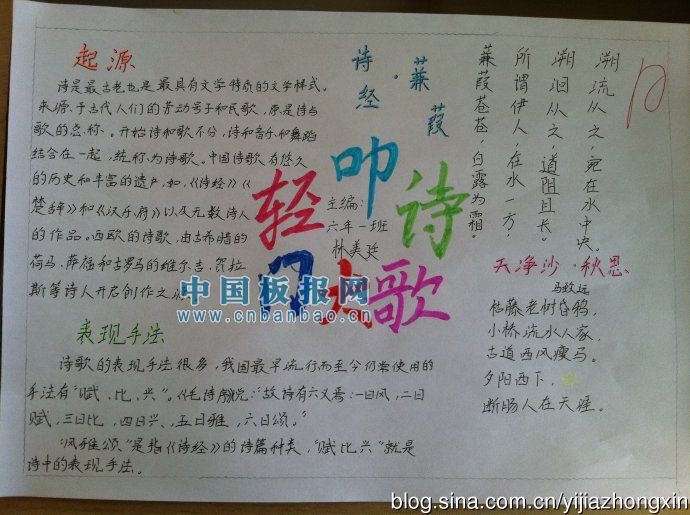 起源
诗是最古老也是最具有文学特质的文学样式。
来源于古代人们的劳动号子和民歌，原是诗与
歌的总称。开始诗和歌不分，诗和音乐和舞蹈
结合在一起，统称为诗歌。中国诗歌有悠久
的历史和丰富的遗产，如，《诗经》《
楚辞》和《汉乐府》以及无数诗人
的作品。西欧的诗歌，由古希腊的
荷马、萨福和古罗马的维尔吉、贺拉
斯等诗人开启创作之
表现手法
诗歌的表现手法很多，我国最早流行而至今仍常使用的
手法有“赋、比、兴”。《毛诗序》说：“故诗有六义焉：一曰风，二曰
赋，三曰比，四曰兴，五曰雅，六曰颂。”
“风雅颂”是指《诗经》的诗篇种类，“赋比兴”就是
诗中的表现手法。
轻叩诗
歌
主编：
六年一班
林美廷
中国板报网
www.cnbanbao.cn
诗经·蒹葭
蒹葭苍苍，白露为霜。
所谓伊人，在水一方，
溯洄从之，道阻且长。
溯流从之，宛在水中央。
天净沙·秋思
马致远
枯藤老树昏鸦，
小桥流水人家，
古道西风瘦马。
夕阳西下，
断肠人在天涯。
blog.sina.com.cn/yijiazhongxin